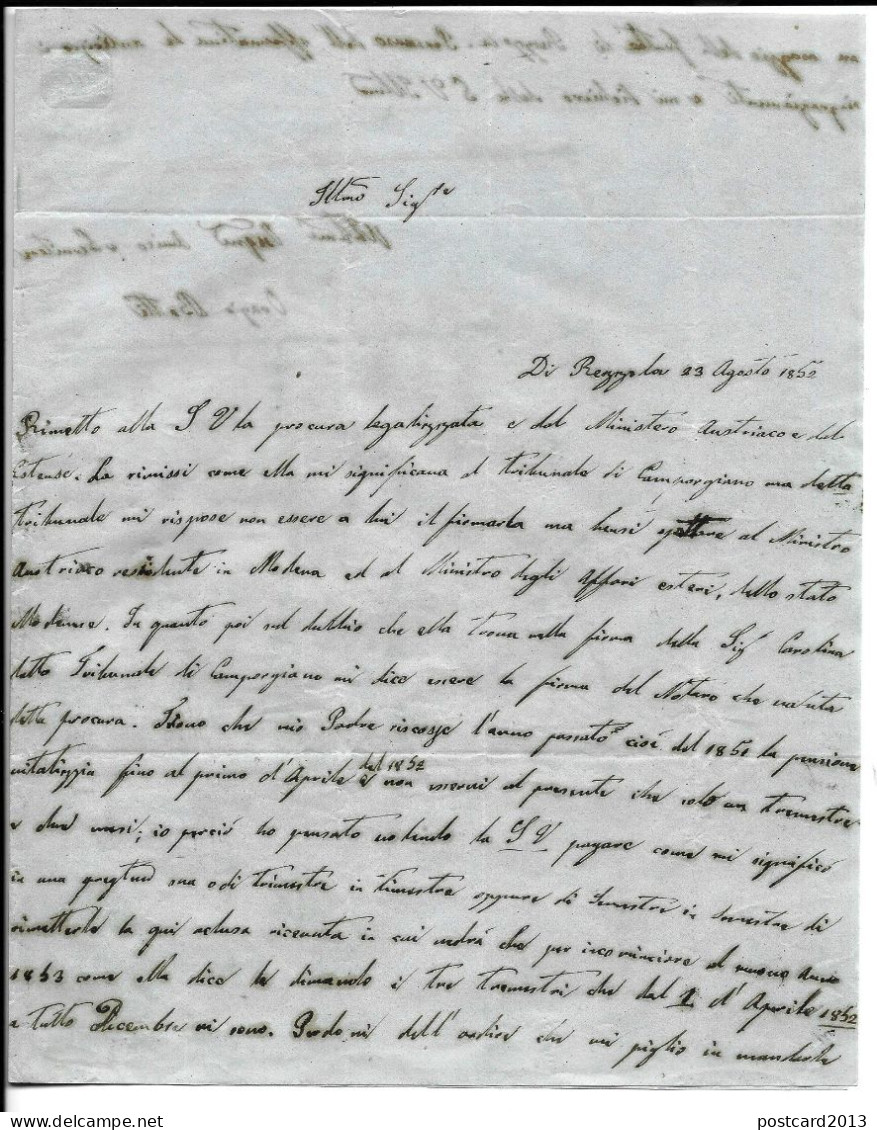 Illmo Sigre
Di Rezzola 23 Agosto 1852
Rimetto alla S V la procura legalizzata e dal Ministero Austriaco e dal
Estense. La rimissi come ella mi significava al tribunale di Camporgiano ma detto
Tribunale mi rispose non essere a lui il firmarla ma bensì spettare al Ministro
Austriaco residente in Modena ed al Ministro degli Affari esteri, dello stato
Modenese. In quanto poi sul dubbio che ella trova nella firma della Sigr Carolina
detto Tribunale di Camporgiano mi dice essere la firma del Notaro che
detta procura. Trovo che mio Padre riscosse l'anno passato cioè del 1851 la pensione
vitalizzia fino al primo d'Aprile del 1852 e non esservi al presente che solo un tremestre
e due mesi; io perciò ho pensato volendo la S V pagare come mi significò
in una pregiud sua o di trimestre in timestre oppure di Semestre in Semestre di
rimetterle la qui aclusa ricevuta in cui vedrà che per incominciare al nuovo Anno
1853 come ella dice le dimando i tre tremestri che dal 1 d'Aprile 1852
a tutto Dicembre vi sono. Perdoni dell'ardire che mi piglio in mandarle
postcard2013